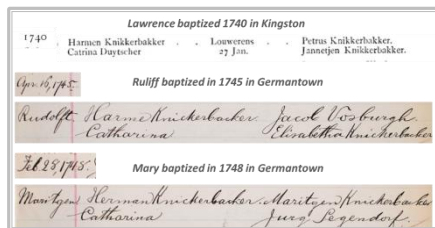 Lawrence baptized 1740 in Kingston
1740 Harmen Knikkerbakker . . Louwerens . Petrus Knikkerbakker.
Catrina Duytscher 27 Jan. Jannetjen Knikkerbakker.
Apr. 16, 1745. Ruliff baptized in 1745 in Germantown
Rudolft Harme Knickerbacker. Jacob Vosburgh.
Catharina Elisabetha Knickerbacker
Feb 28, 1748. Mary baptized in 1748 in Germantown
Maritgen Herman Knickerbacker. Maritgen Knickerbacker
Catharina Jurg Segendorf.